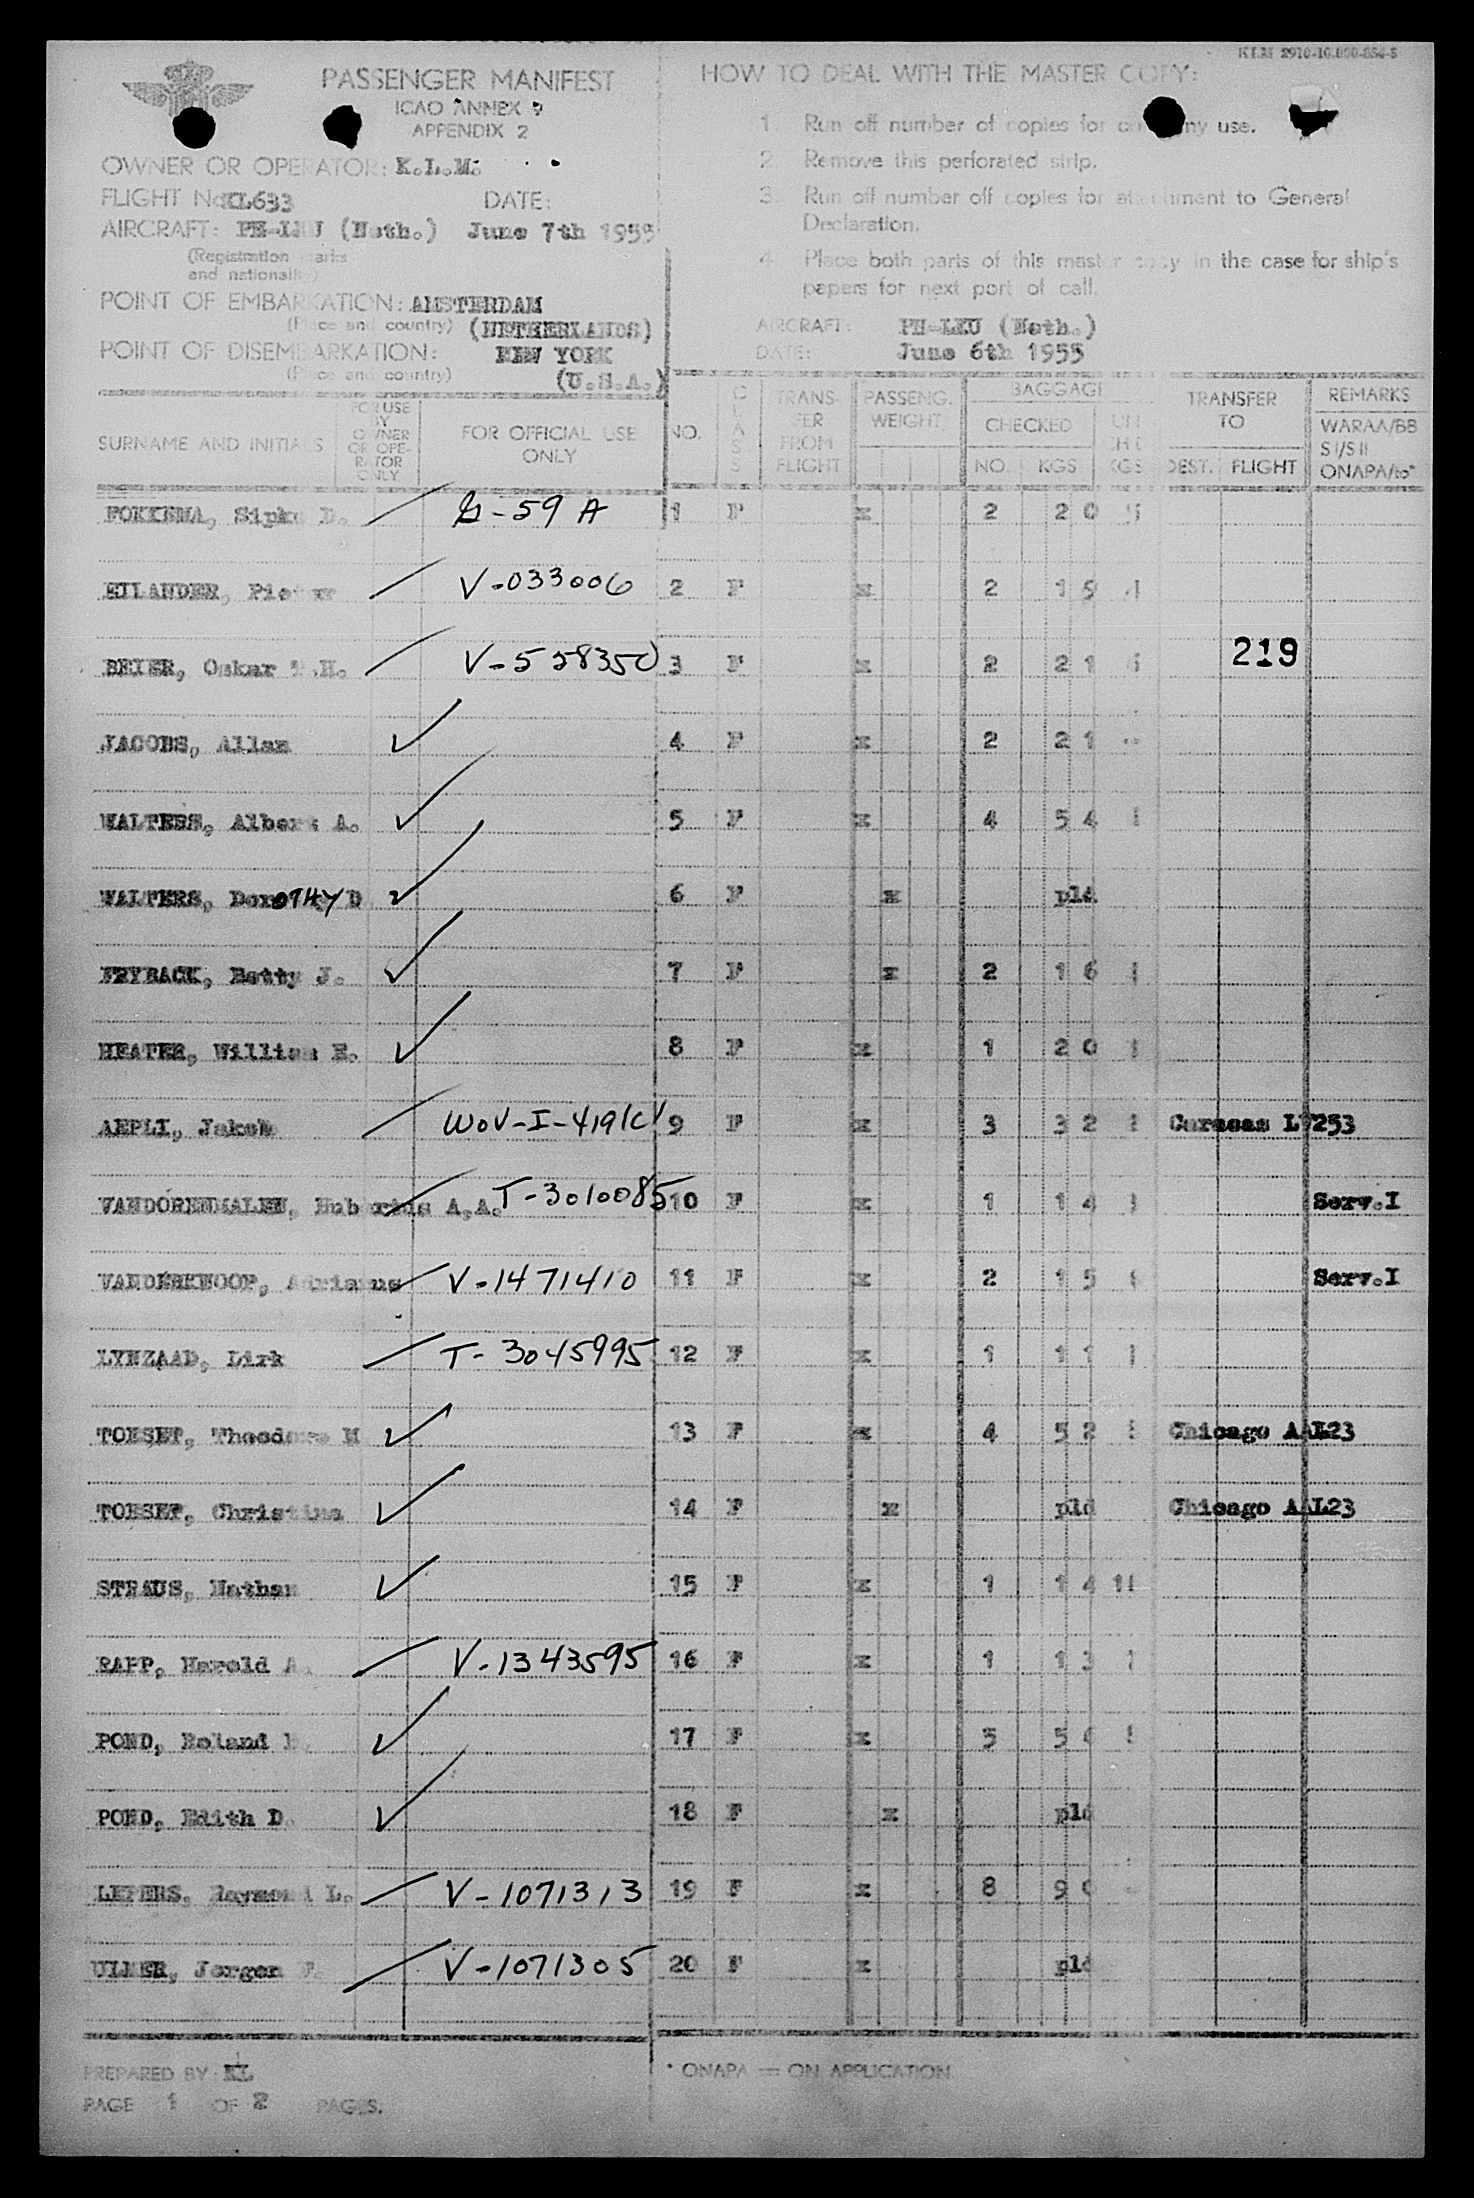 KLM 2910-10.000-854-5
PASSENGER MANIFEST
ICAO ANNEX 9
APPENDIX 2
OWNER OR OPERATOR: K.L.M.
FLIGHT No KL633 DATE:
AIRCRAFT: PH-LKU (Neth.) June 7th 1955
(Registration marks
and nationality)
POINT OF EMBARKATION: AMSTERDAM
(Place and country) (NETHERLANDS)
POINT OF DISEMBARKATION: NEW YORK
(Place and country) (U.S.A.)
HOW TO DEAL WITH THE MASTER COPY:
1. Run off number of copies for company use.
2. Remove this perforated strip.
3. Run off number off copies for attachment to General
Declaration.
4. Place both parts of this master copy in the case for ship's
papers for next port of call.
AIRCRAFT: PH-LKU (Neth.)
DATE: June 6th 1955
SURNAME AND INITIALS FOR USE BY OWNER OR OPERATOR ONLY FOR OFFICIAL USE ONLY NO. CLASS TRANSFER FROM FLIGHT PASSENG. WEIGHT BAGGAGE CHECKED NO. KGS KGS TRANSFER TO DEST. FLIGHT REMARKS WARAA/BB SI/SII ONAPA/to*
FOKKEMA, Sipke D. G-59 A 1 F x 2 20
EILANDER, Pieter V-033006 2 F x 2 19
BEIER, Oskar .H. V-558350 3 F x 2 21 219
JACOBS, Allan 4 F x 2 21 -
WALTERS, Albert A. 5 F x 4 54
WALTERS, DorOTHY D 6 F x pld
FRYBACK, Betty J. 7 F x 2 16
HEATER, William E. 8 F x 1 20
AEPLI, Jakob WoV-I-419/CV 9 F x 3 32 Caracas LV253
VANDORENMALEN, Hubertus A.A. T-3010085 10 F x 1 14 Serv.I
VANDERKNOOP, Adrianus V-1471410 11 F x 2 15 Serv.I
LYNZAAD, Dirk T-3045995 12 F x 1 11
TOESET, Theodore M 13 F x 4 52 Chicago AAL23
TOESET, Christina 14 F x pld Chicago AAL23
STRAUS, Nathan 15 F x 1 14
RAPP, Harold A. V-1343595 16 F x 1 13
POND, Roland 17 F x 5 5
POND, Edith D. 18 F x pld
LEPERS, Raymond L. V-1071313 19 F x 8 9
ULMER, Jorgen F. V-1071305 20 F x pld
PREPARED BY: KL
PAGE 1 OF 2 PAGES.
* ONAPA = ON APPLICATION